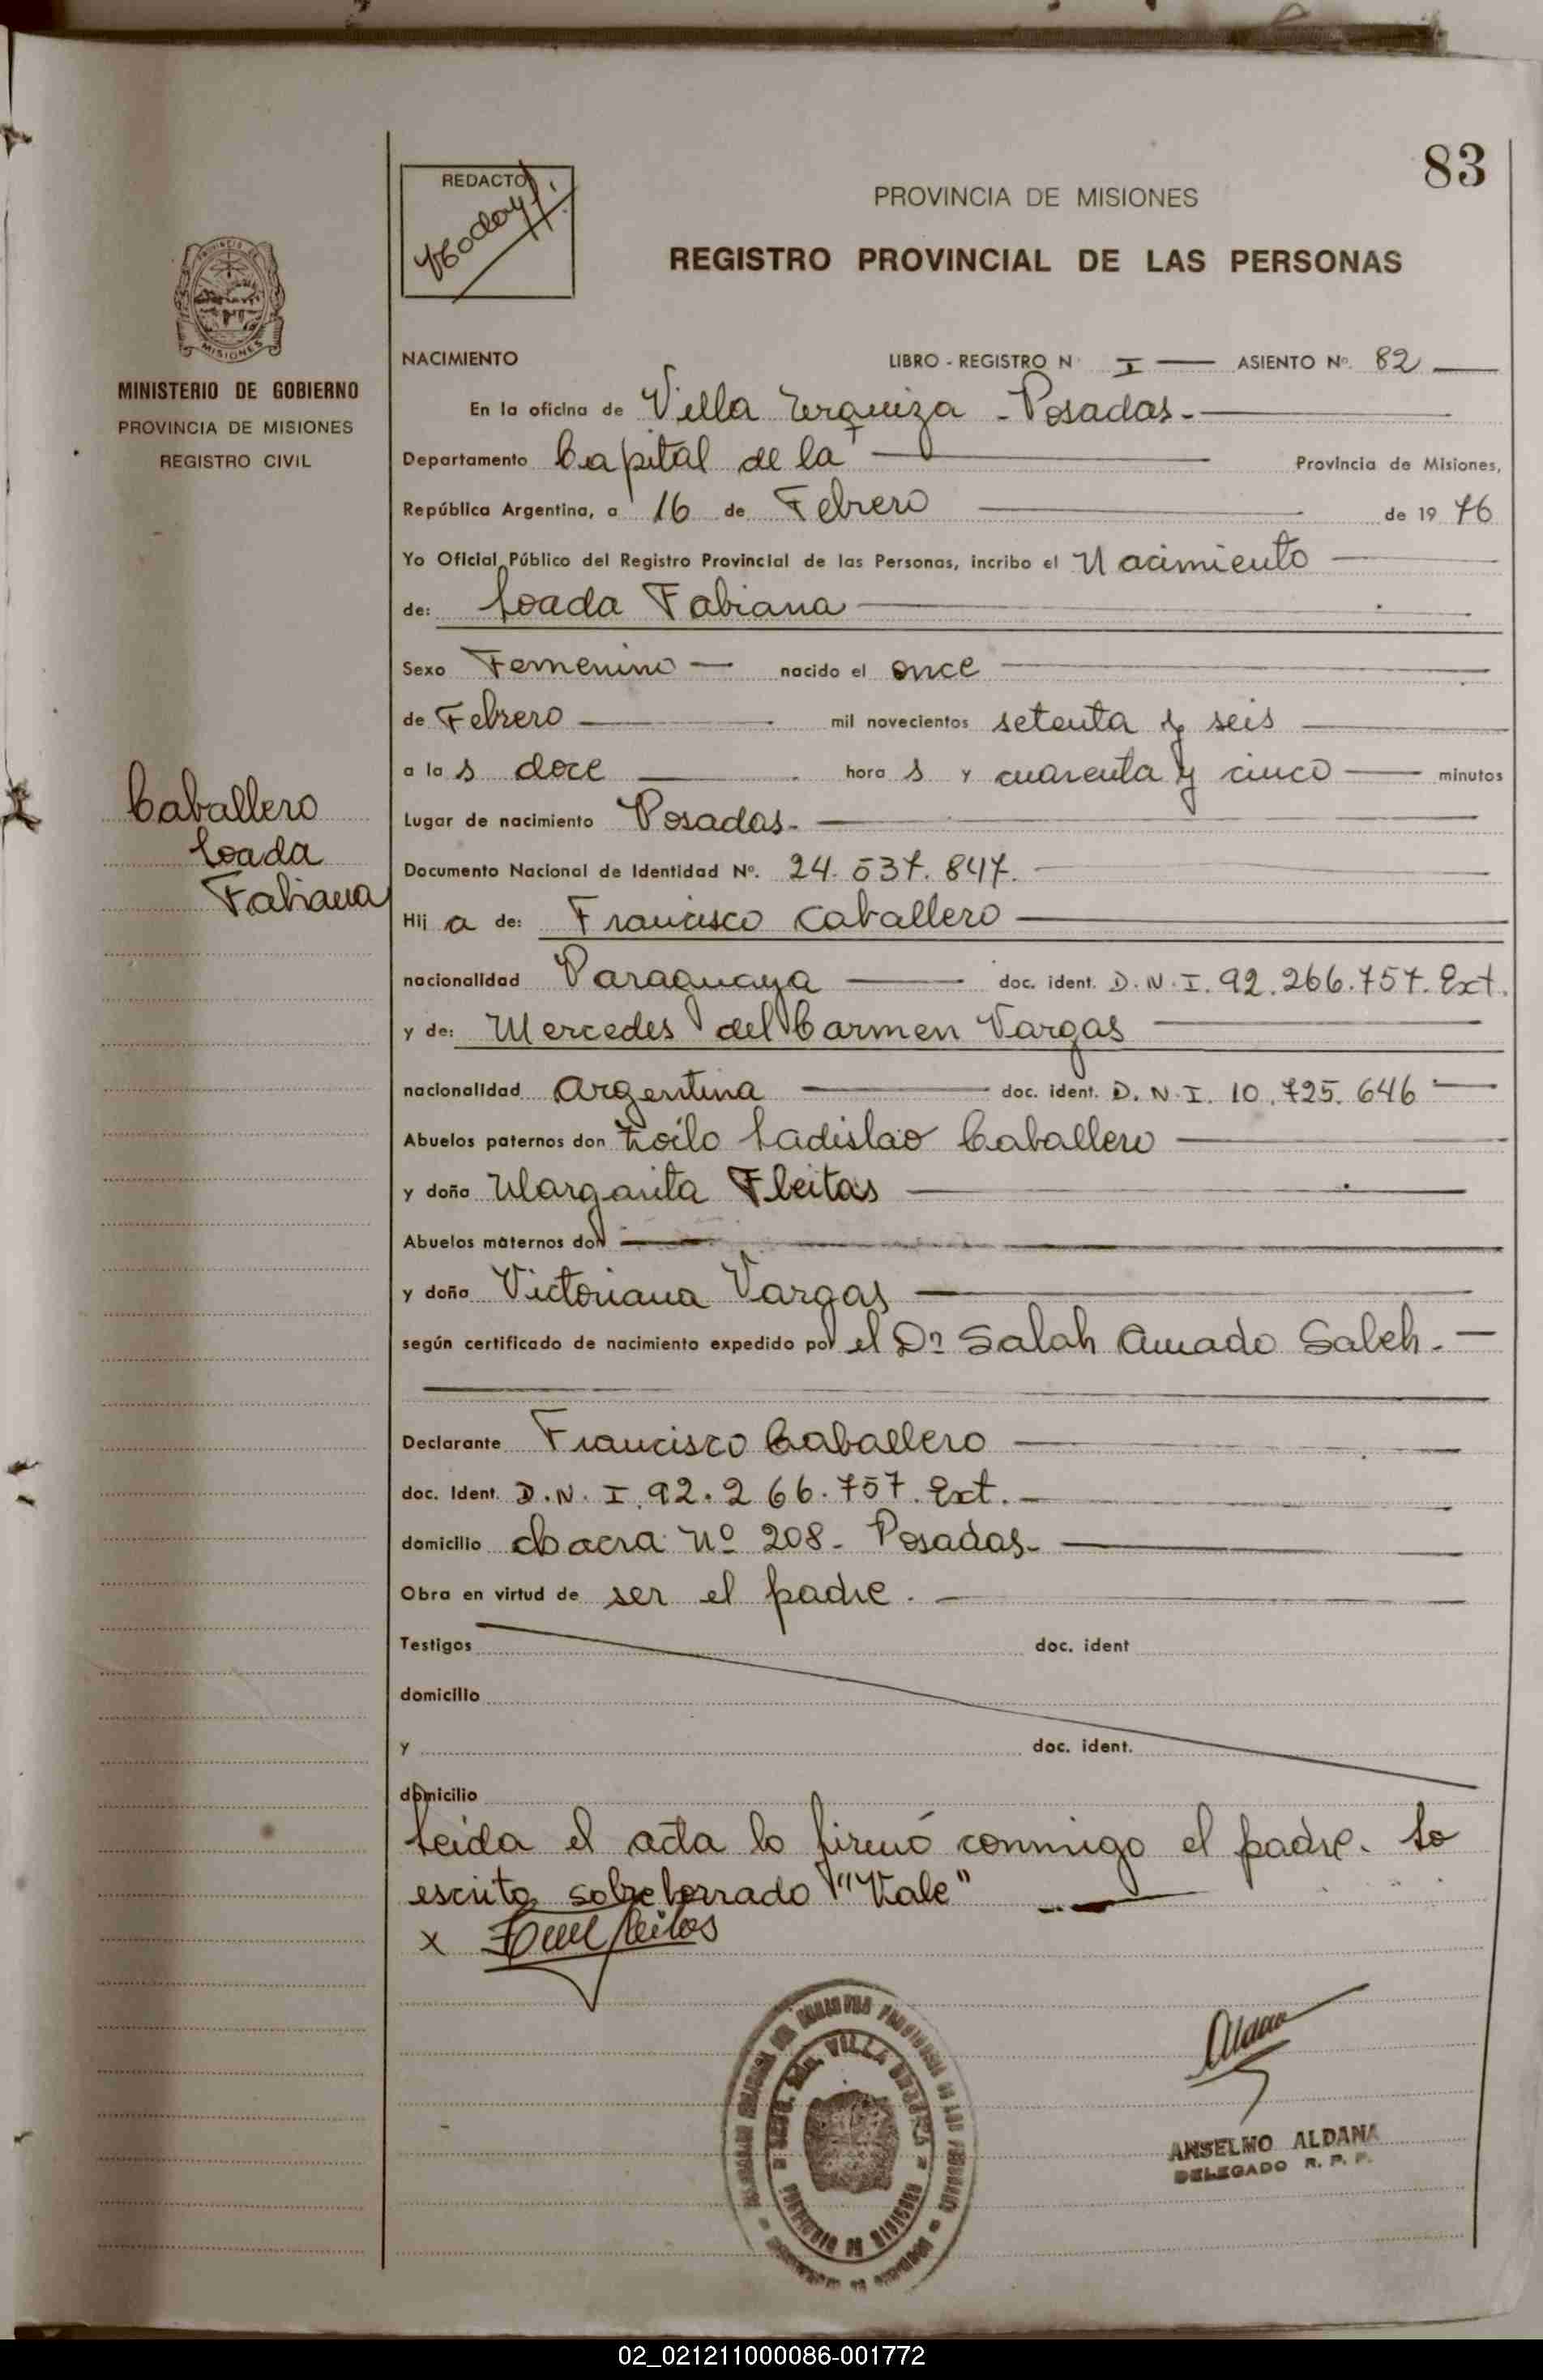 83
REDACTO
PROVINCIA DE MISIONES
REGISTRO PROVINCIAL DE LAS PERSONAS
MISIONES
MINISTERIO DE GOBIERNO
PROVINCIA DE MISIONES
REGISTRO CIVIL
NACIMIENTO LIBRO - REGISTRO Nº I ASIENTO Nº. 82
En la oficina de Villa Urquiza - Posadas.-
Departamento Capital de la Provincia de Misiones,
República Argentina, a 16 de Febrero de 19 76
Yo Oficial Público del Registro Provincial de las Personas, incribo el Nacimiento
de: Loada Fabiana
Sexo Femenino nacido el once
de Febrero mil novecientos setenta y seis
a la s doce hora s y cuarenta y cinco minutos
Caballero
Loada
Fabiana
Lugar de nacimiento Posadas.-
Documento Nacional de Identidad Nº. 24.537.847.
Hij a de: Francisco Caballero
nacionalidad Paraguaya doc. ident. D.N.I. 92.266.757. Ext.
y de: Mercedes del Carmen Vargas
nacionalidad argentina doc. ident. D.N.I. 10.725.646
Abuelos paternos don Zoilo Ladislao Caballero
y doña Margarita Fleitas
Abuelos maternos don
y doña Victoriana Vargas
según certificado de nacimiento expedido por el Dr Salah Amado Saleh.
Declarante Francisco Caballero
doc. Ident. D.N.I. 92.266.757. Ext.
domicilio chacra Nº 208- Posadas-
Obra en virtud de ser el padre.
Testigos doc. ident
domicilio
y doc. ident.
domicilio
Leida el acta lo firmó conmigo el padre. Lo
escrito sobreborrado "Vale"
x
VILLA
PROVINCIA DE MISIONES
ANSELMO ALDANA
DELEGADO R. P. P.
02_021211000086-001772